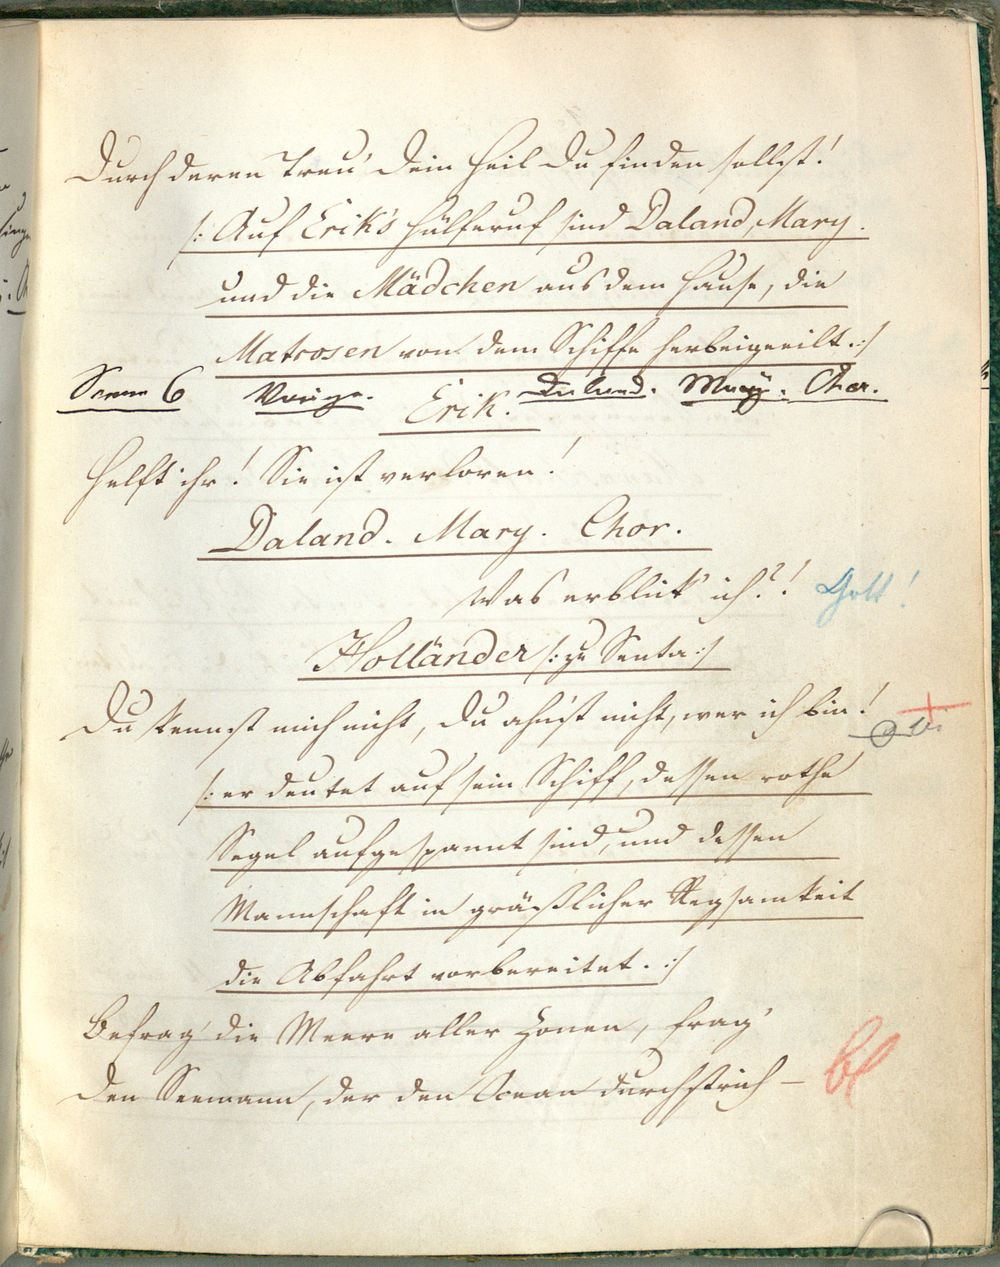 durch deren Treu' Dein Heil Du finden sollst!
/: Auf Erik's Hülferuf sind Daland, Mary.
und die Mädchen aus dem Hause, die
Matrosen von dem Schiffe herbeigeeilt. :/
Scene 6 Vorige. Daland. Mary. Chor.
Erik.
Helft ihr! Sie ist verloren!
Daland. Mary. Chor.
Was erblick' ich?! Gott!
Holländer /: zu Senta :/
Du kennst mich nicht, Du ahn'st nicht, wer ich bin!
/: er deutet auf sein Schiff, dessen rothe
Segel aufgespannt sind, und dessen
Mannschaft in gräßlicher Regsamkeit
die Abfahrt vorbereitet. :/
Befrag' die Meere aller Zonen, frag'
den Seemann, der den Ocean durchstrich —